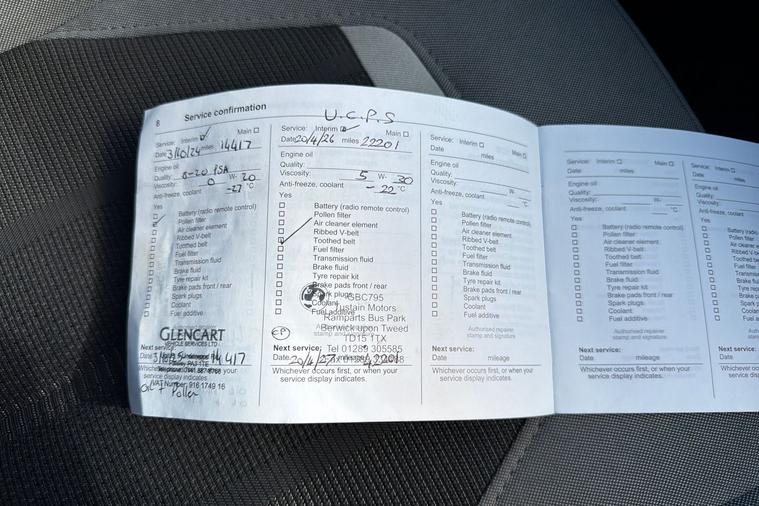 8 Service confirmation
U.C.P.S
Service: Interim ✓ Main
Date 3/10/24 miles 14417
Engine oil
Quality: 0-20 PSA
Viscosity: 0 W- 20
Anti-freeze, coolant -27 °C
Yes
Battery (radio remote control)
Pollen filter
Air cleaner element
Ribbed V-belt
Toothed belt
Fuel filter
Transmission fluid
Brake fluid
Tyre repair kit
Brake pads front / rear
Spark plugs
Coolant
Fuel additive
GLENCART
VEHICLE SERVICES LTD
Next service:
Date 14,417
Whichever occurs first, or when your
service display indicates.
VAT Number: 916 1749 16
Oil + Pollen
Service: Interim ✓ Main
Date 20/4/26 miles 22201
Engine oil
Quality:
Viscosity: 5 W- 30
Anti-freeze, coolant - 22 °C
Yes
Battery (radio remote control)
Pollen filter
Air cleaner element
Ribbed V-belt
Toothed belt
Fuel filter
Transmission fluid
Brake fluid
Tyre repair kit
Brake pads front / rear
Spark plugs
Coolant
Fuel additive
GBC795
Tustain Motors
Ramparts Bus Park
Berwick upon Tweed
TD15 1TX
Tel 01289 305585
Next service:
Date 20/4/27
Whichever occurs first, or when your
service display indicates.
Service: Interim Main
Date miles
Engine oil
Quality:
Viscosity: W-
Anti-freeze, coolant °C
Yes
Battery (radio remote control)
Pollen filter
Air cleaner element
Ribbed V-belt
Toothed belt
Fuel filter
Transmission fluid
Brake fluid
Tyre repair kit
Brake pads front / rear
Spark plugs
Coolant
Fuel additive
Authorised repairer
stamp and signature
Next service:
Date mileage
Whichever occurs first, or when your
service display indicates.
Service: Interim Main
Date miles
Engine oil
Quality:
Viscosity: W-
Anti-freeze, coolant °C
Yes
Battery (radio remote control)
Pollen filter
Air cleaner element
Ribbed V-belt
Toothed belt
Fuel filter
Transmission fluid
Brake fluid
Tyre repair kit
Brake pads front / rear
Spark plugs
Coolant
Fuel additive
Authorised repairer
stamp and signature
Next service:
Date mileage
Whichever occurs first, or when your
service display indicates.
Service: Interim
Date
Engine oil
Quality:
Viscosity:
Anti-freeze, coolant
Yes
Battery (radio
Pollen filter
Air cleaner
Ribbed V-belt
Toothed belt
Fuel filter
Transmission
Brake fluid
Tyre repair
Brake pads
Spark plugs
Coolant
Fuel additive
Next service:
Date
Whichever occurs
service display